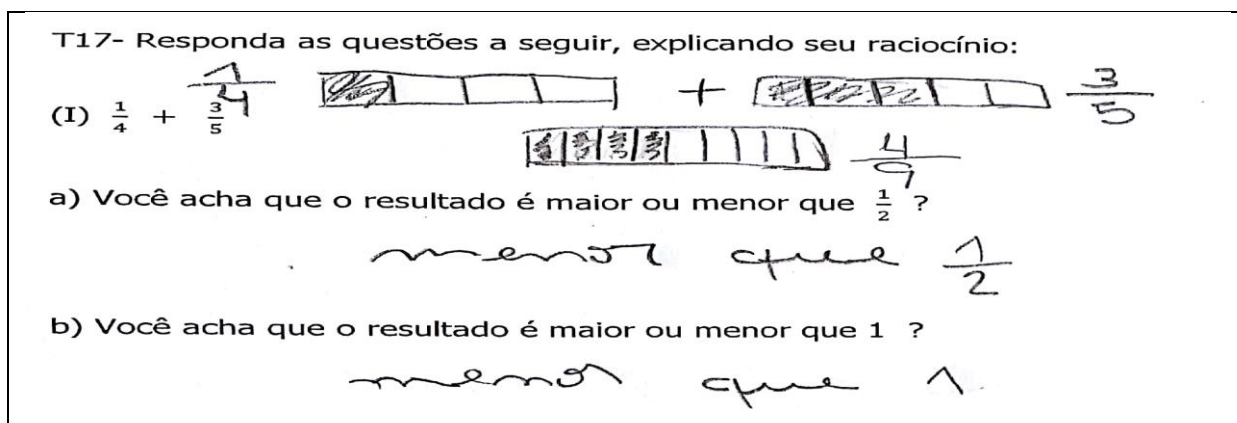 T17- Responda as questões a seguir, explicando seu raciocínio:
1/4 + 3/5
(I) 1/4 + 3/5
4/9
a) Você acha que o resultado é maior ou menor que 1/2 ?
menor que 1/2
b) Você acha que o resultado é maior ou menor que 1 ?
menor que 1